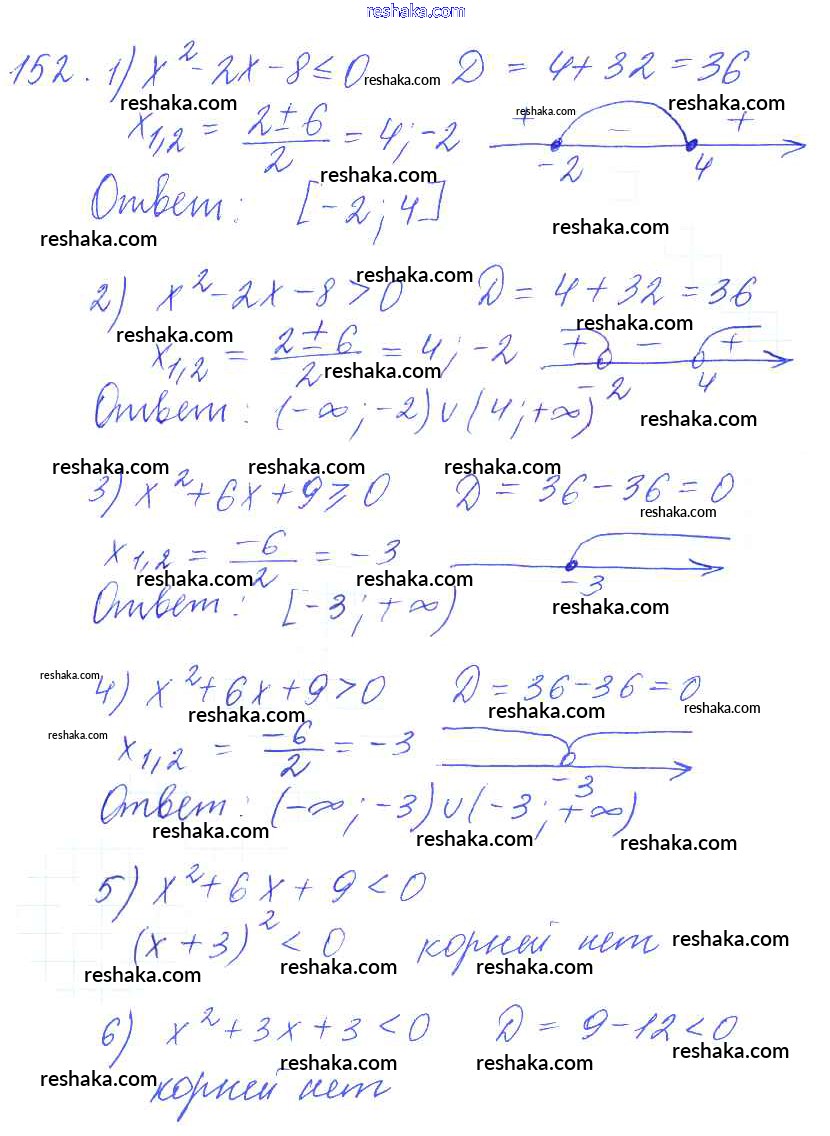 reshaka.com
152. 1) x² - 2x - 8 ≤ 0 reshaka.com D = 4 + 32 = 36
reshaka.com reshaka.com reshaka.com
x₁,₂ = (2 ± 6)/2 = 4; -2 + − + -2 4
reshaka.com
Ответ: [-2; 4]
reshaka.com reshaka.com
2) x² - 2x - 8 > 0 reshaka.com D = 4 + 32 = 36
reshaka.com reshaka.com
x₁,₂ = (2 ± 6)/2 = 4; -2 + − + -2 4
reshaka.com
Ответ: (-∞; -2) ∪ (4; +∞)
reshaka.com
reshaka.com reshaka.com reshaka.com
3) x² + 6x + 9 ≥ 0 D = 36 - 36 = 0
reshaka.com
x₁,₂ = -6/2 = -3 -3
reshaka.com reshaka.com
Ответ: [-3; +∞) reshaka.com
reshaka.com
4) x² + 6x + 9 > 0 D = 36 - 36 = 0
reshaka.com reshaka.com reshaka.com
reshaka.com x₁,₂ = -6/2 = -3 -3
Ответ: (-∞; -3) ∪ (-3; +∞)
reshaka.com reshaka.com reshaka.com
5) x² + 6x + 9 < 0
(x + 3)² < 0 корней нет reshaka.com
reshaka.com reshaka.com reshaka.com
6) x² + 3x + 3 < 0 D = 9 - 12 < 0
reshaka.com reshaka.com reshaka.com
reshaka.com корней нет